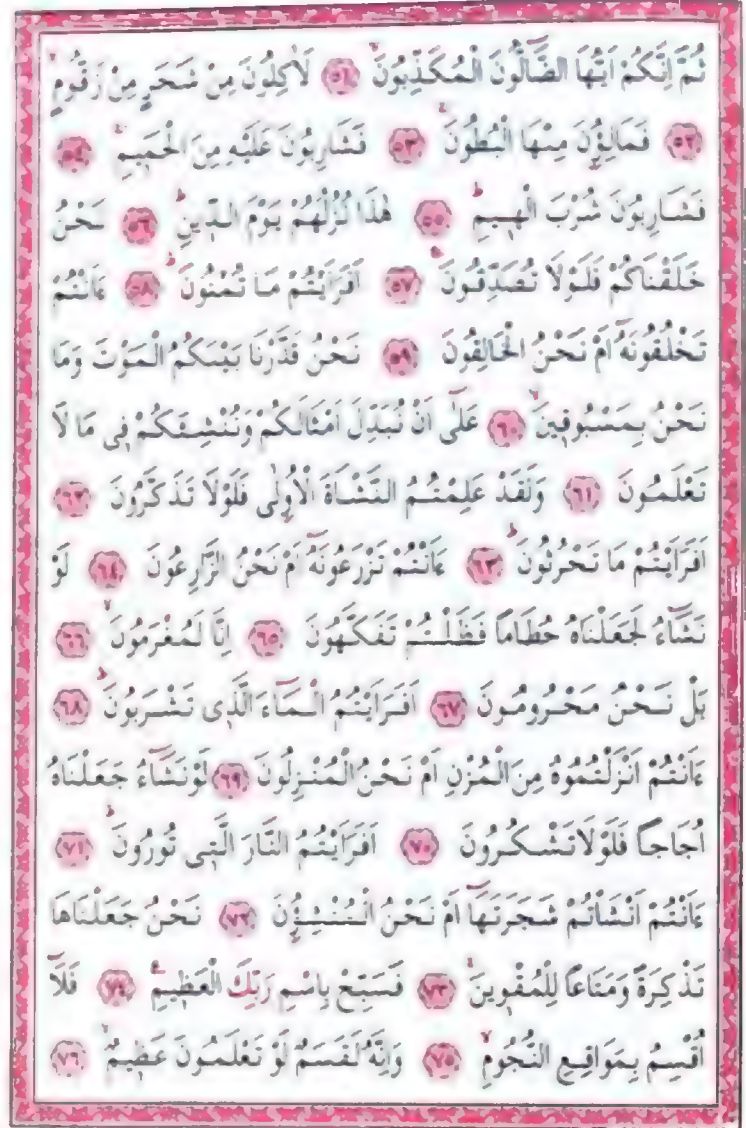 ثُمَّ اِنَّكُمْ اَيُّهَا الضَّٓالُّونَ الْمُكَذِّبُونَۙ ﴿٥١﴾ لَاٰكِلُونَ مِنْ شَجَرٍ مِنْ زَقُّومٍۙ
﴿٥٢﴾ فَمَالِؤُ۫نَ مِنْهَا الْبُطُونَۚ ﴿٥٣﴾ فَشَارِبُونَ عَلَيْهِ مِنَ الْحَمٖيمِۚ ﴿٥٤﴾
فَشَارِبُونَ شُرْبَ الْهٖيمِۜ ﴿٥٥﴾ هٰذَا نُزُلُهُمْ يَوْمَ الدّٖينِۜ ﴿٥٦﴾ نَحْنُ
خَلَقْنَاكُمْ فَلَوْلَا تُصَدِّقُونَ ﴿٥٧﴾ اَفَرَاَيْتُمْ مَا تُمْنُونَۜ ﴿٥٨﴾ ءَاَنْتُمْ
تَخْلُقُونَهُٓ اَمْ نَحْنُ الْخَالِقُونَ ﴿٥٩﴾ نَحْنُ قَدَّرْنَا بَيْنَكُمُ الْمَوْتَ وَمَا
نَحْنُ بِمَسْبُوقٖينَۙ ﴿٦٠﴾ عَلٰٓى اَنْ نُبَدِّلَ اَمْثَالَكُمْ وَنُنْشِئَكُمْ فٖى مَا لَا
تَعْلَمُونَ ﴿٦١﴾ وَلَقَدْ عَلِمْتُمُ النَّشْاَةَ الْاُولٰى فَلَوْلَا تَذَكَّرُونَ ﴿٦٢﴾
اَفَرَاَيْتُمْ مَا تَحْرُثُونَۜ ﴿٦٣﴾ ءَاَنْتُمْ تَزْرَعُونَهُٓ اَمْ نَحْنُ الزَّارِعُونَ ﴿٦٤﴾ لَوْ
نَشَٓاءُ لَجَعَلْنَاهُ حُطَامًا فَظَلْتُمْ تَفَكَّهُونَ ﴿٦٥﴾ اِنَّا لَمُغْرَمُونَۙ ﴿٦٦﴾
بَلْ نَحْنُ مَحْرُومُونَ ﴿٦٧﴾ اَفَرَاَيْتُمُ الْمَٓاءَ الَّذٖى تَشْرَبُونَۜ ﴿٦٨﴾
ءَاَنْتُمْ اَنْزَلْتُمُوهُ مِنَ الْمُزْنِ اَمْ نَحْنُ الْمُنْزِلُونَ ﴿٦٩﴾ لَوْ نَشَٓاءُ جَعَلْنَاهُ
اُجَاجًا فَلَوْلَا تَشْكُرُونَ ﴿٧٠﴾ اَفَرَاَيْتُمُ النَّارَ الَّتٖى تُورُونَۜ ﴿٧١﴾
ءَاَنْتُمْ اَنْشَاْتُمْ شَجَرَتَهَٓا اَمْ نَحْنُ الْمُنْشِؤُ۫نَ ﴿٧٢﴾ نَحْنُ جَعَلْنَاهَا
تَذْكِرَةً وَمَتَاعًا لِلْمُقْوٖينَۚ ﴿٧٣﴾ فَسَبِّحْ بِاسْمِ رَبِّكَ الْعَظٖيمِ ﴿٧٤﴾ فَلَٓا
اُقْسِمُ بِمَوَاقِعِ النُّجُومِۙ ﴿٧٥﴾ وَاِنَّهُ لَقَسَمٌ لَوْ تَعْلَمُونَ عَظٖيمٌۙ ﴿٧٦﴾